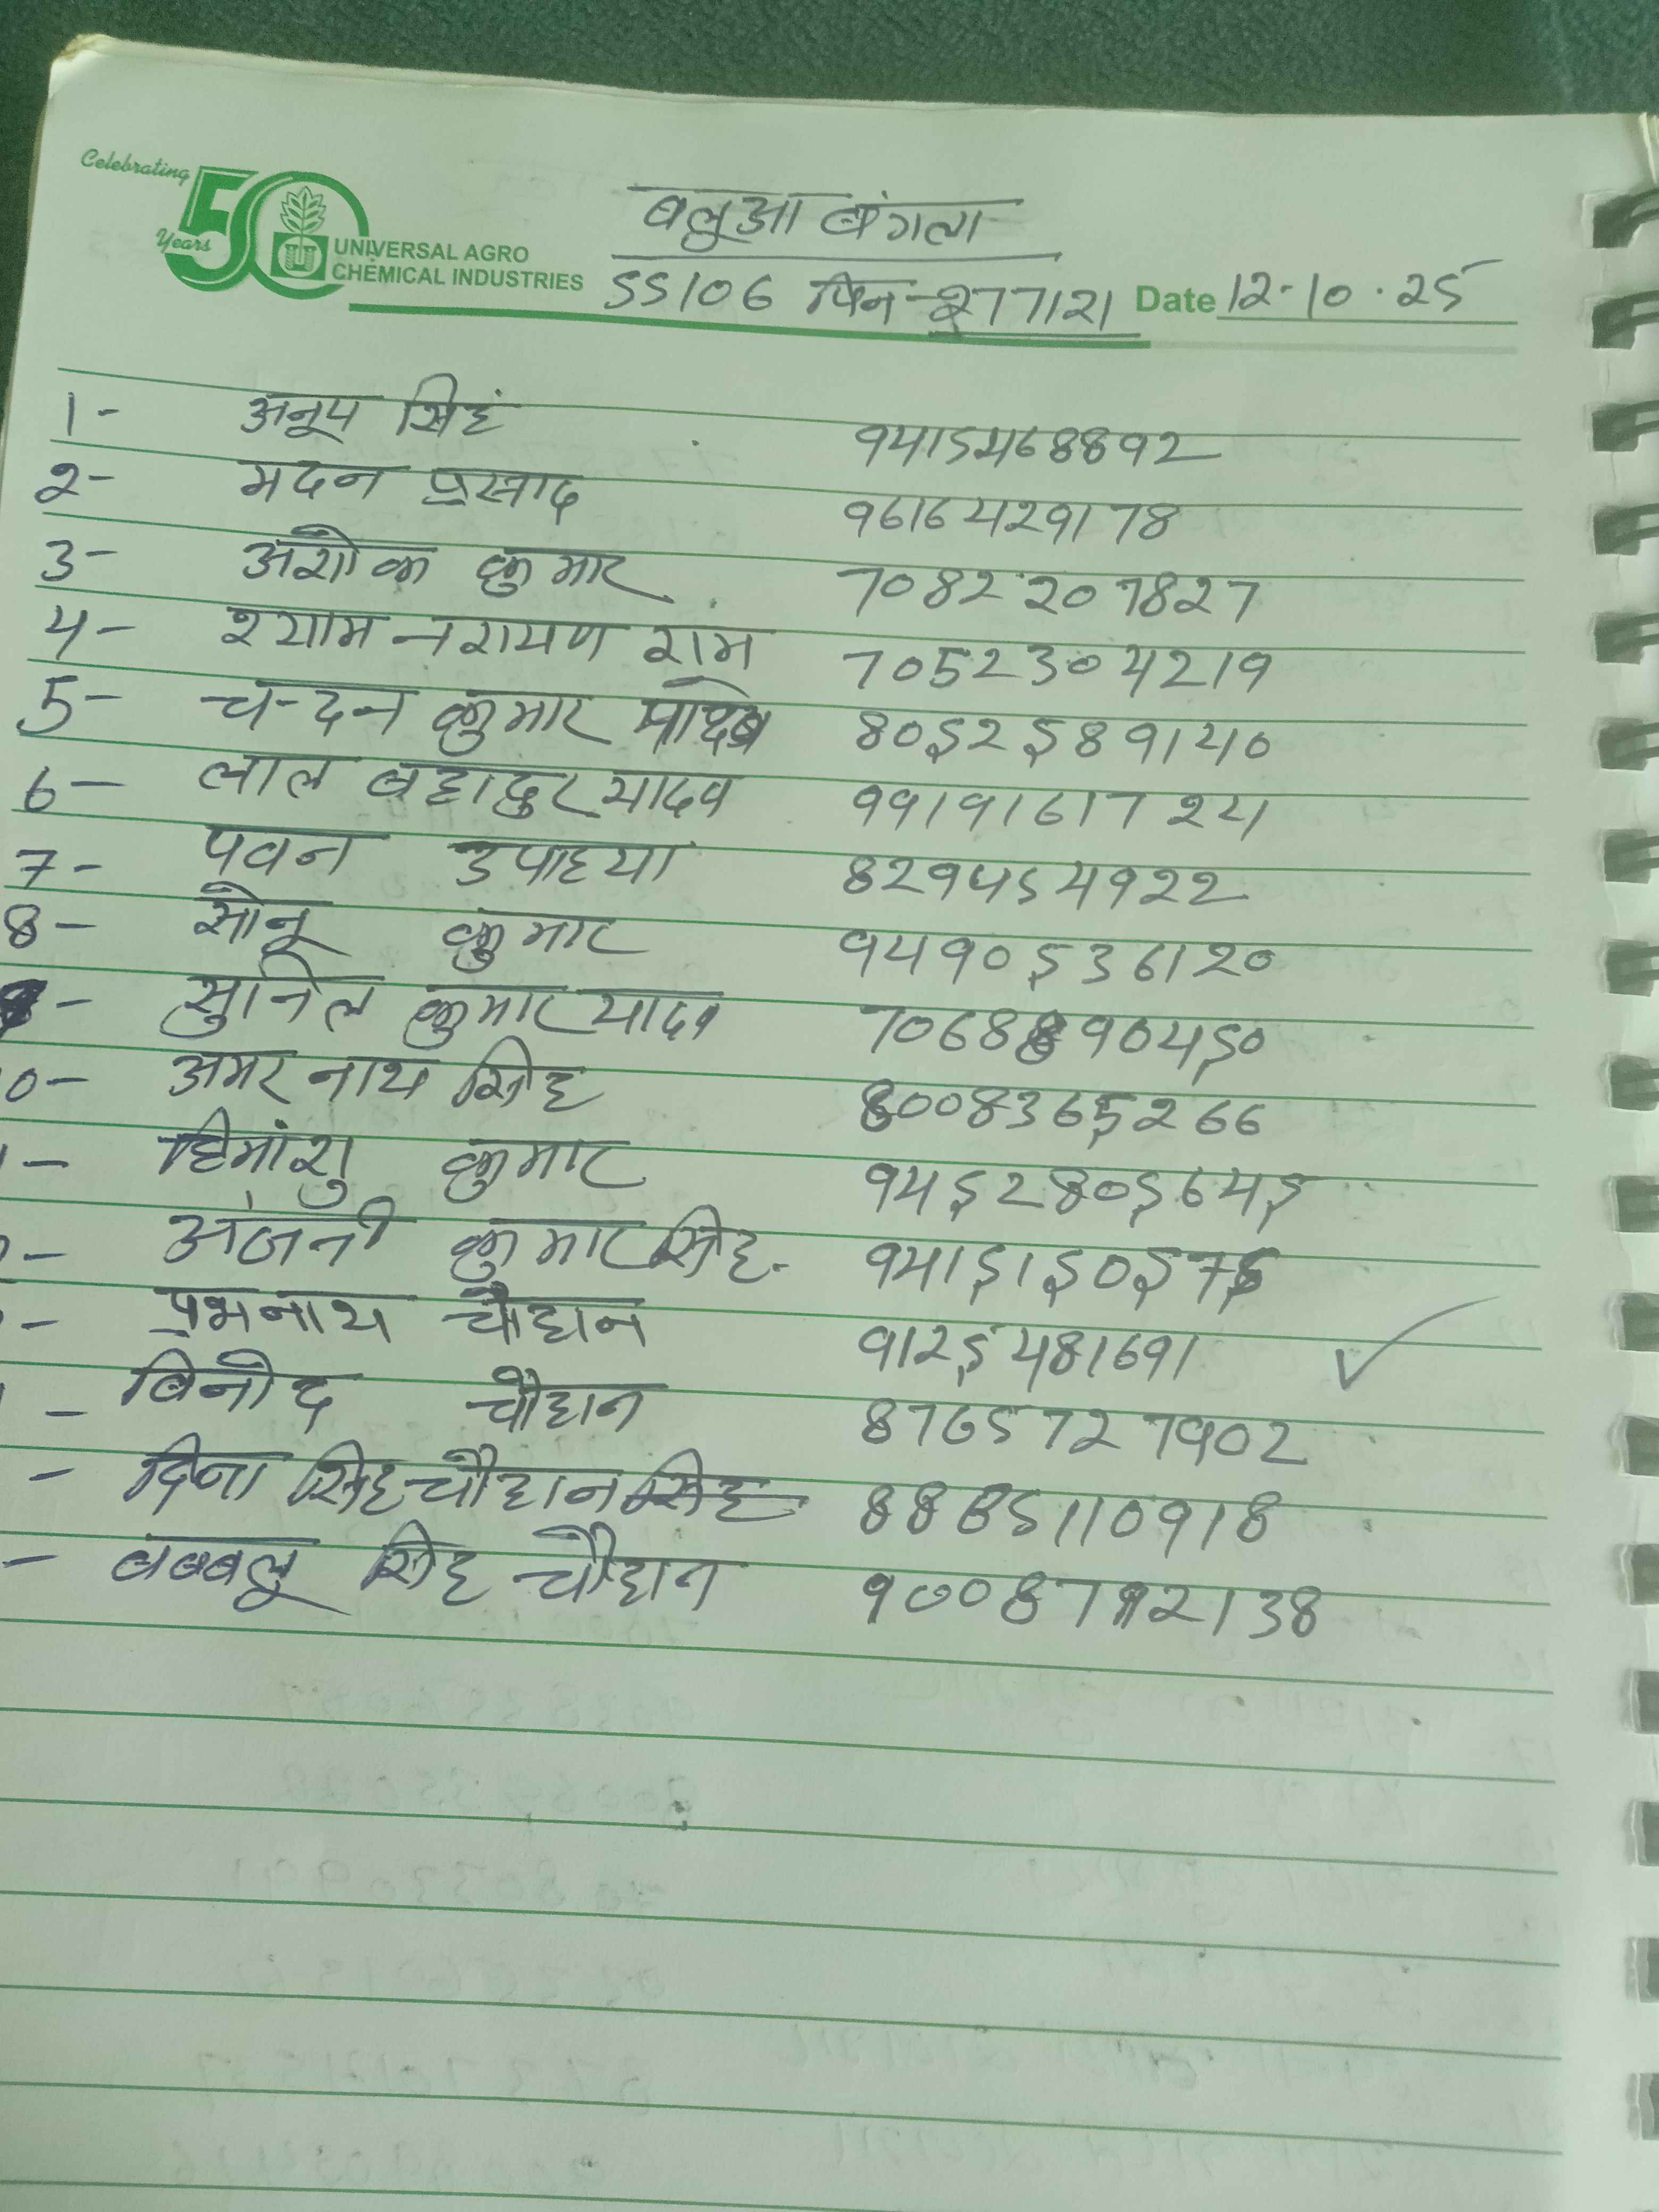 Celebrating
50
Years
UNIVERSAL AGRO
CHEMICAL INDUSTRIES
बलुआ बंगला
SS106 पिन-277121 Date 12-10-25
1- अनूप सिहं 9415468892
2- मदन प्रसाद 9616429178
3- अशोक कुमार 7082207827
4- श्याम नरायण राम 7052304219
5- चन्दन कुमार 8052589140
6- लाल बहादुर यादव 9919161724
7- पवन उपाध्या 829454922
8- सोनू कुमार 9490536120
9- सुनिल कुमार यादव 7068890450
0- अमर नाथ सिंह 8008365266
- हिमांशु कुमार 9452805645
- अंजनी कुमार सिंह
- प्रभनाथ चौहान 9125481691
- विनोद चौहान 8765727902
- दिना सिंह चौहान सिंह 110918
- बब्बलू सिंह चौहान 2138